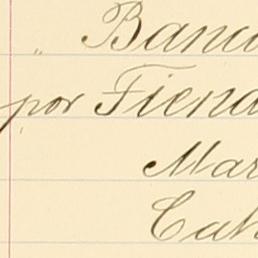 „ Banco
por Tienda
Mar
Cab